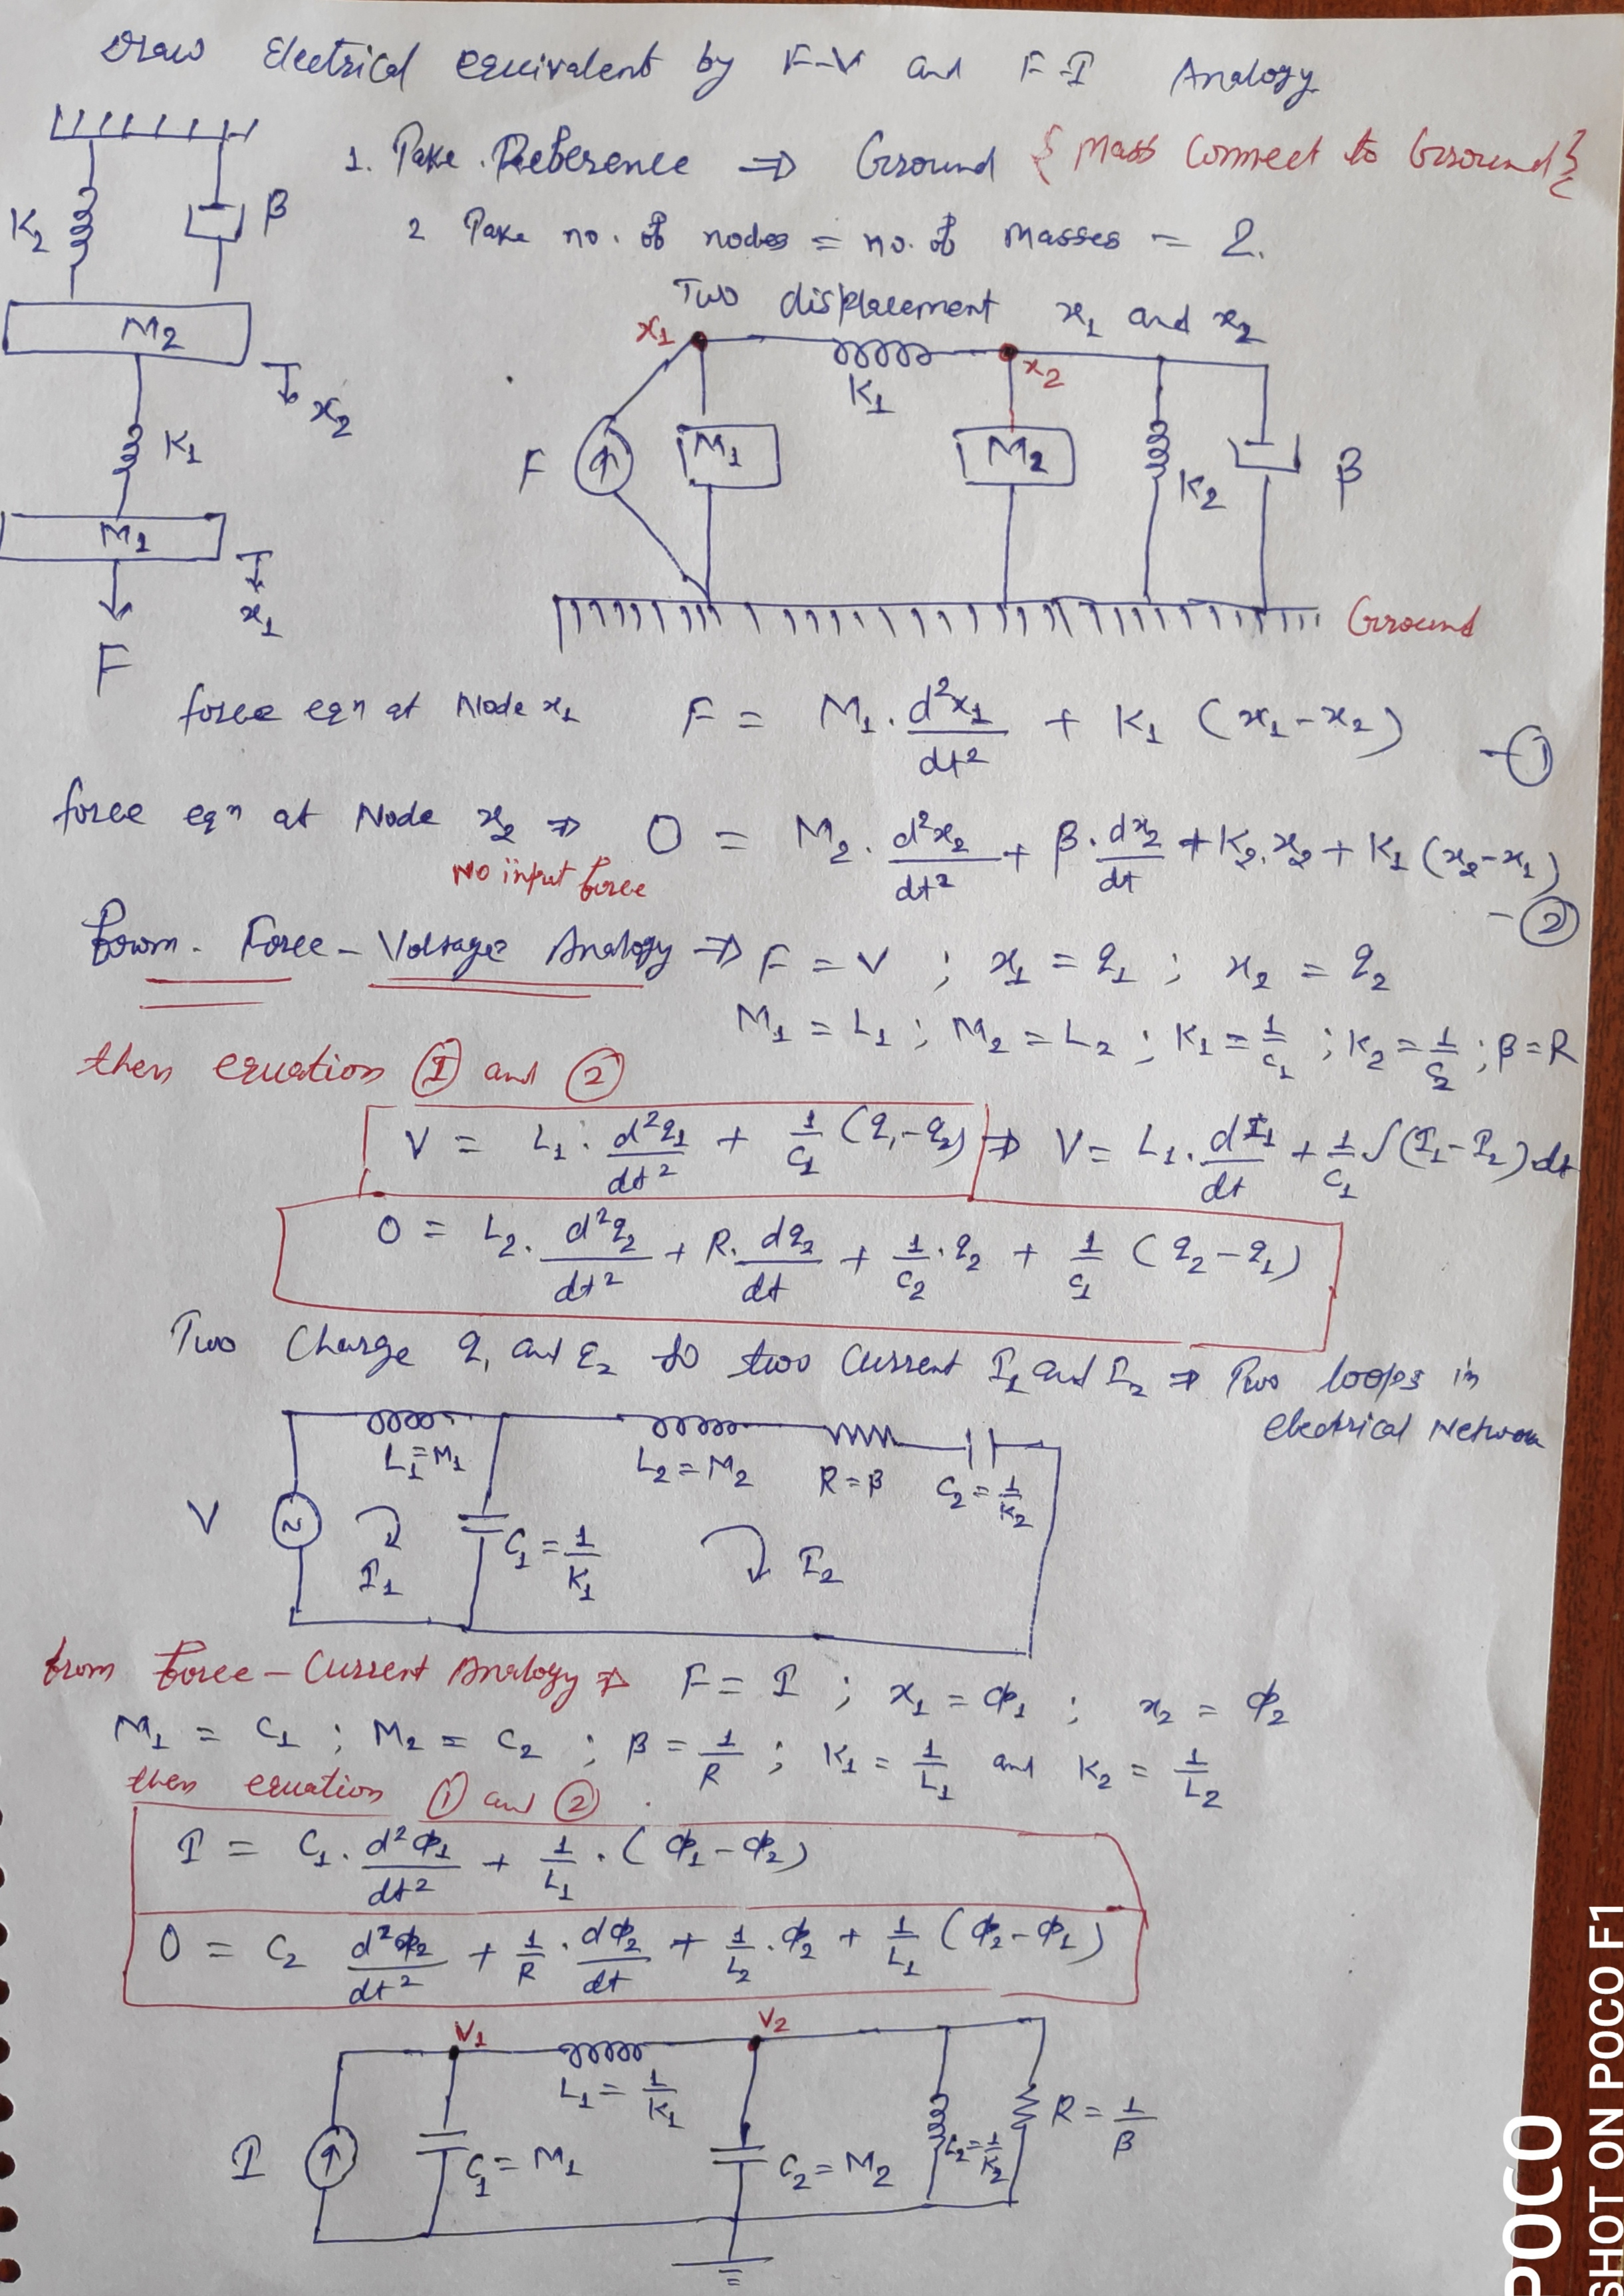 Draw Electrical equivalent by F-V and F-I Analogy
1. Take Reference ⇒ Ground { Mass Connect to Ground }
2 Take no. of nodes = no. of Masses = 2.
Two displacement x₁ and x₂
K₂ β
M₂
x₂
K₁
M₁
x₁
F
x₁ K₁ x₂
F M₁ M₂ K₂ β
Ground
force eqn at Node x₁ F = M₁. d²x₁/dt² + K₁ (x₁-x₂) -①
force eqn at Node x₂ ⇒ 0 = M₂. d²x₂/dt² + β. dx₂/dt + K₂.x₂ + K₁ (x₂-x₁) -②
No input force
From. Force-Voltage Analogy ⇒ F = V ; x₁ = q₁ ; x₂ = q₂
M₁ = L₁ ; M₂ = L₂ ; K₁ = 1/C₁ ; K₂ = 1/C₂ ; β = R
then equation ① and ②
V = L₁. d²q₁/dt² + 1/C₁ (q₁-q₂) ⇒ V = L₁. dI₁/dt + 1/C₁ ∫(I₁-I₂)dt
0 = L₂. d²q₂/dt² + R. dq₂/dt + 1/C₂ . q₂ + 1/C₁ (q₂-q₁)
Two Charge q₁ and q₂ so two Current I₁ and I₂ ⇒ Two loops in
electrical Network
L₁=M₁ L₂=M₂ R=β C₂=1/K₂
V I₁ C₁=1/K₁ I₂
from Force-Current Analogy ⇒ F = I ; x₁ = Φ₁ ; x₂ = Φ₂
M₁ = C₁ ; M₂ = C₂ ; β = 1/R ; K₁ = 1/L₁ and K₂ = 1/L₂
then equation ① and ② .
I = C₁. d²Φ₁/dt² + 1/L₁ . (Φ₁-Φ₂)
0 = C₂ d²Φ₂/dt² + 1/R . dΦ₂/dt + 1/L₂ . Φ₂ + 1/L₁ (Φ₂-Φ₁)
V₁ V₂
L₁ = 1/K₁
I C₁ = M₁ C₂ = M₂ L₂=1/K₂ R = 1/β
POCO
SHOT ON POCO F1